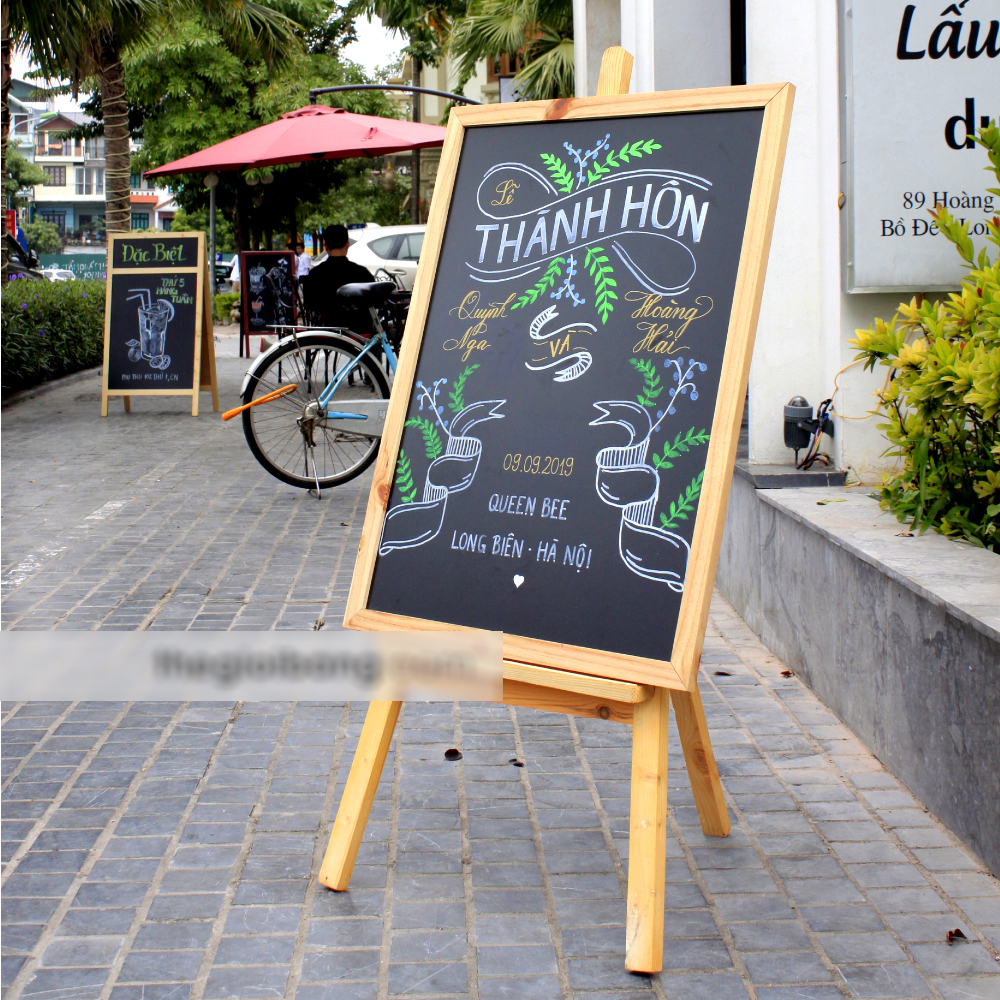 Lễ
THÁNH HÔN
Quỳnh
Nga
VÀ
Hoàng
Hải
09.09.2019
QUEEN BEE
LONG BIÊN · HÀ NỘI
Đặc Biệt
THỨ 5
HÀNG
TUẦN
Lẩu
89 Hoàng
Bồ Đề